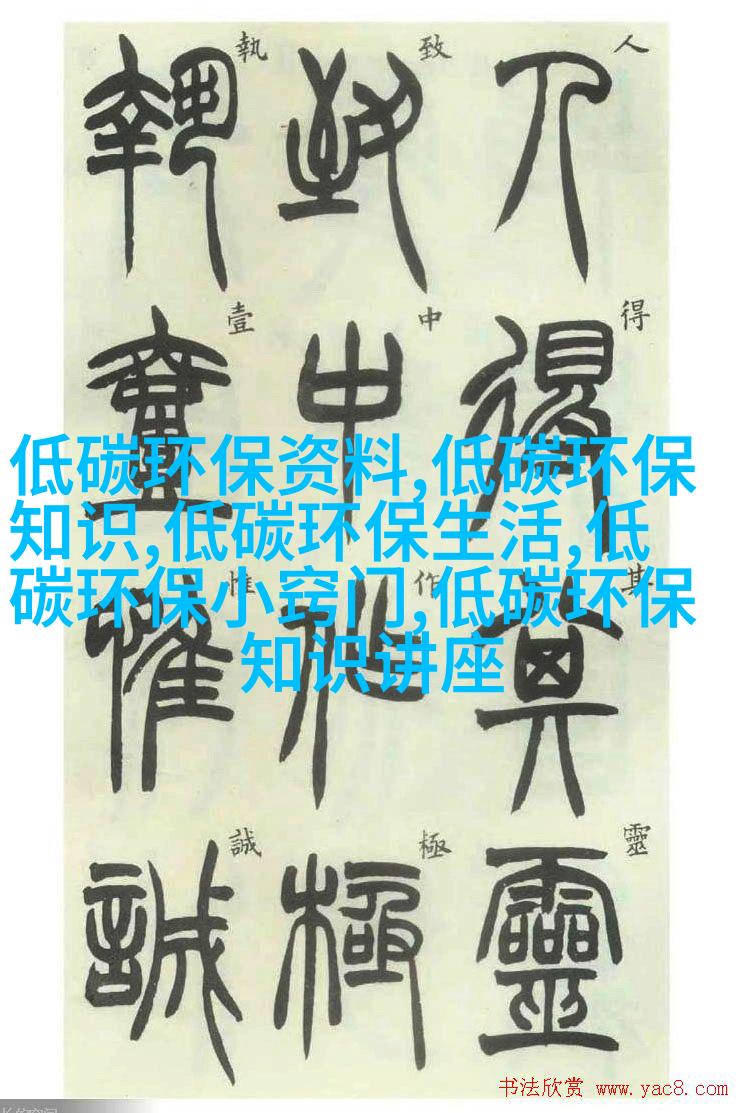 人得其靈
致中作極
執壹惟誠
低碳环保资料,低碳环保
知识,低碳环保生活,低
碳环保小窍门,低碳环保
知识讲座
书法欣赏 www.yac8.com